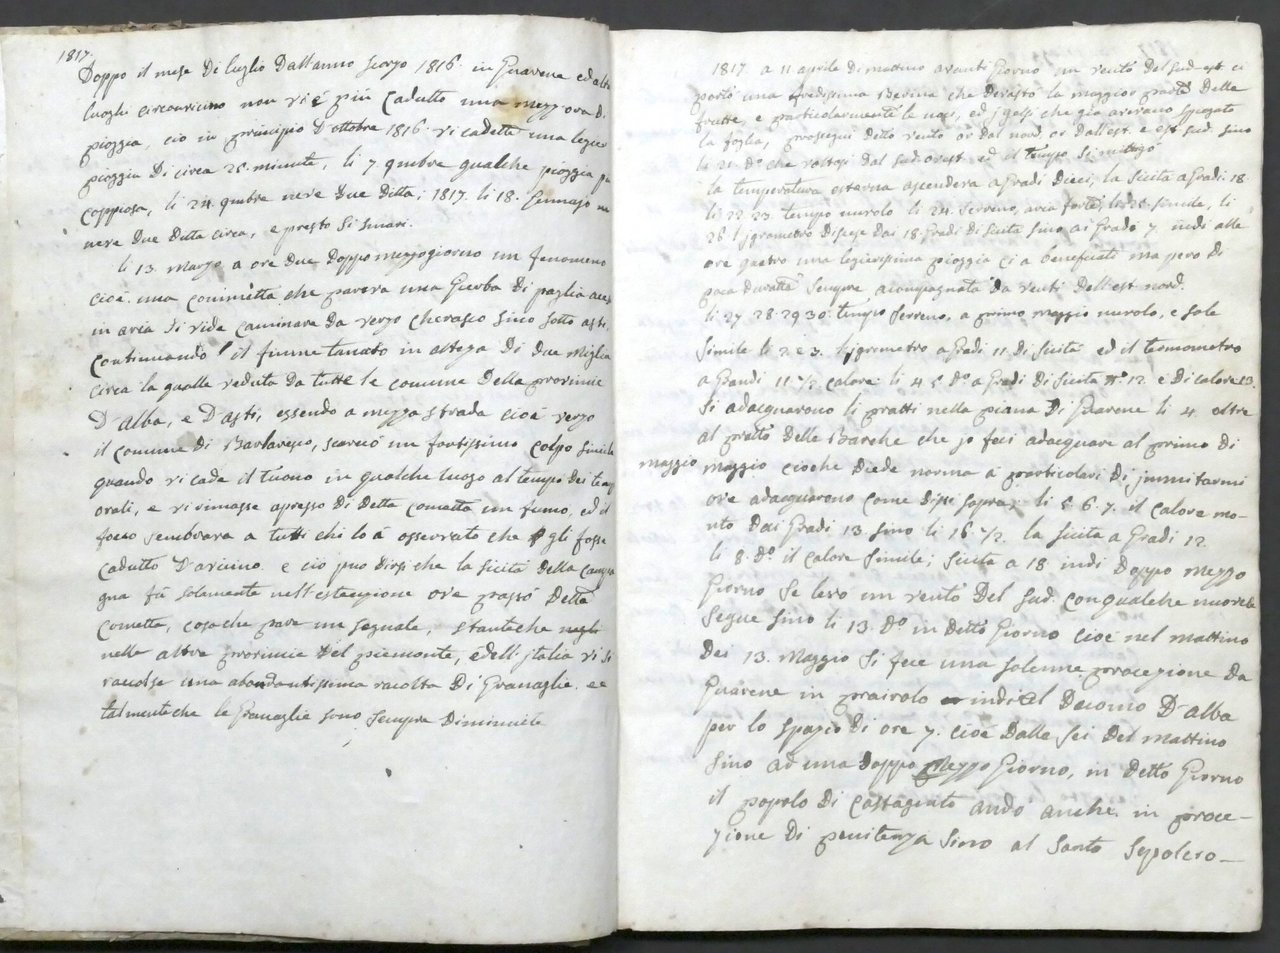 1817.
Doppo il mese Di luglio Dall'anno scorzo 1816. in Guarene ed altri
luoghi circonvicino non vi é piú Cadutto una mezz'ora di
pioggia, cio in principio D'ottobre 1816. vi cadette una legier
pioggia Di circa 25. minuta, li 7 9mbre qualche pioggia
coppiosa, li 24. 9mbre neve Due Ditta; 1817. li 18. Gennajo
neve Due Ditta circa, e presto Si smari.
li 13. Marzo a ore Due Doppo mezzogiorno un fenomeno
cioé una commétta che pareva una Guerba Di paglia
in aria Si vide Caminare Da verzo Cherasco Sino Sotto asti,
Continuando il fiume tanaro in alteza Di Due Miglia
Circa la qualle veduta Da tutte le comune Della provincie
D'alba, e D'asti, essendo a mezza strada cioé verzo
il Comune Di Barbaresco, scaricó un fortissimo Colpo Simile
quando vi cade il tuono in qualche luogo al tempo Dei temp
orali, e vi rimasse apresso Di Detta cometta un fumo, ed il
foco Sembrava a tutti chi lo á osservato che gli fosse
Cadutto D'avicino, e cio puo Dirsi che la Siccitá Della Campa
gna fú Solamente nell'estenzione ov'e passó Detta
Cometta, cosa che pare un Segnale, Stanteche negli
nelle altre provincie Del piemonte, e dell'italia vi Si
racolse una abondantissima racolta Di Granaglie. e
talmenteche le Granaglie Sono Sempre Diminuite
1817. a 11 aprile Di mattino avanti Giorno un vento Del Sud est ci
portó una fredissima Bevina che Devastó la maggior parte Delle
frutte, e particolarmente le noci, ed j gelsi che già avevano spiegato
la foglia, proseguí Detto vento or Dal nord, or Dall'est. e est Sud. Sino
li 21. Do che voltossi Dal Sud ovest ed il tempo Si mitigó
la temperatura esterna ascendeva a Gradi Dieci, la Sicita a Gradi 18.
li 22. 23. tempo nuvolo li 24. Serreno, aria forte, li 25. Simile, li
26. l'jgrometro Discese Dai 18. Gradi Di Siccita Sino ai Grado 7. indi alle
ore quatro una legierissima pioggia ci a beneficati ma pero Di
poca Duratta Sempre acompagnata Da venti Dell'est nord.
li 27. 28. 29. 30. tempo Serreno, a primo maggio nuvolo, e Sole
Simile li 2. e 3. l'jgrometro a Gradi 11. Di Sicitá ed il teomometro
a Grandi 11 1/2 Calore: li 4. 5. Do a Gradi Di Sicita 12. e Di Calore 13.
Si adacquarono li pratti nella piana Di Guarene li 4. oltre
al pratto Delle Barche che jo feci adacquare al primo Di
maggio maggio cioche Diede norma á particolari Di jmmitarmi
ove adacquarono come Dissi Sopra; li 5. 6. 7. il Calore mo-
ntó Dai Gradi 13 Sino li 16. 1/2. la Sicita a Gradi 12.
li 8. Do. il Calore Simile; Sicita a 18. indi Doppo mezzo
Giorno Se levó un vento Del Sud. con qualche nuvole
Segue Sino li 13. Do. in Detto Giorno cioé nel mattino
Dei 13. Maggio Si fece una Solenne processione Da
Guarene in indi al Duomo D'alba
per lo Spazio Di ore 7. cioé Dalle Sei Del Mattino
Sino ad una Doppo Mezzo Giorno, in Detto Giorno
il popolo Di Castagnito andó anche in proce-
zione Di penitenza Sino al Santo Sepolcro-